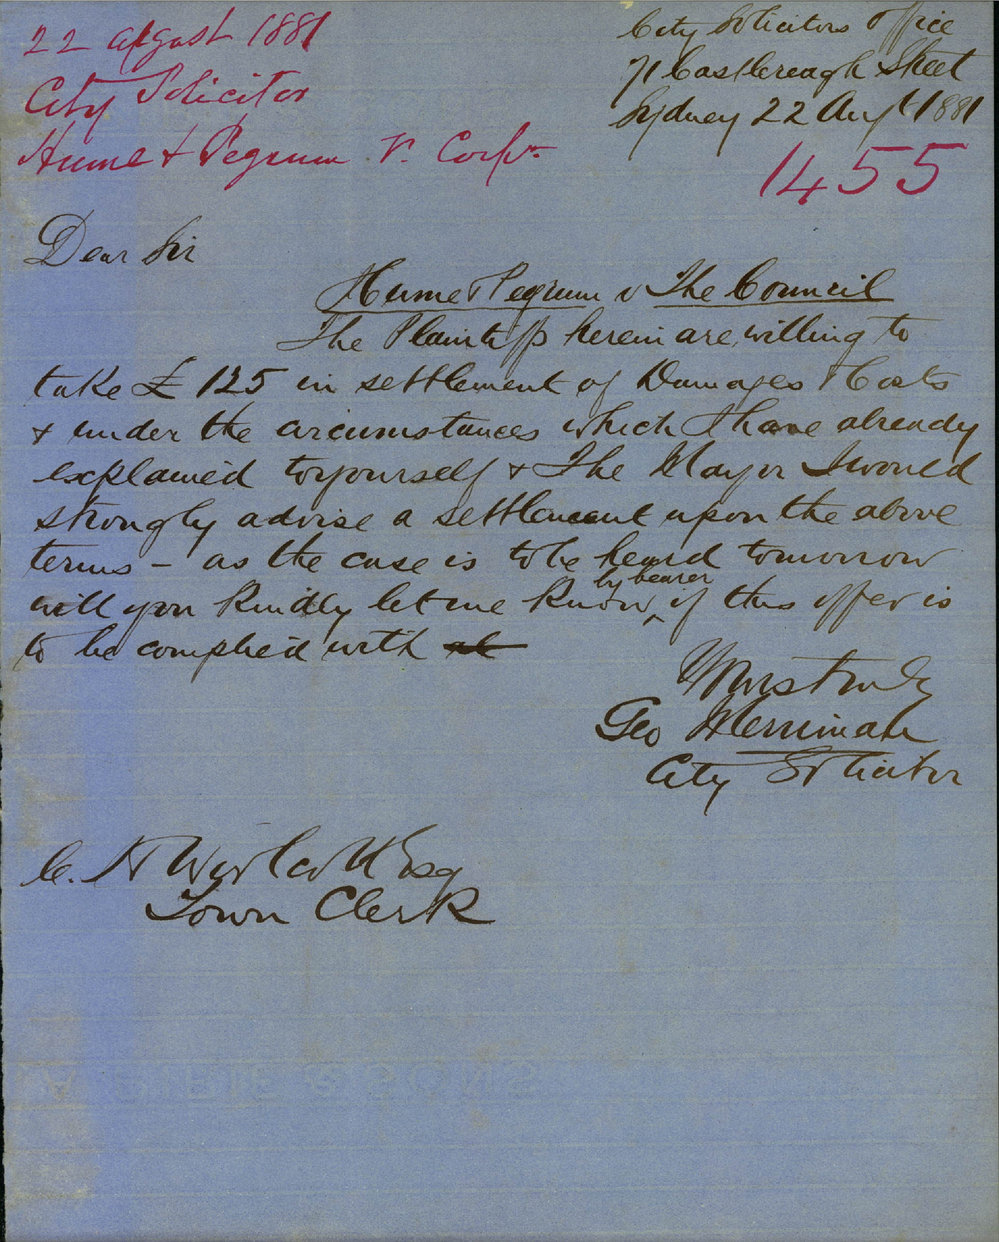 22 August 1881
City Solicitor
Hume & Pegrum v. Corpn
City Solicitors Office
71 Castlereagh Street
Sydney 22 Augt 1881
1455
Dear Sir
Hume & Pegrum v The Council
The Plaintiffs herein are willing to
take £125 in settlement of Damages & Costs
& under the circumstances which I have already
explained to yourself & The Mayor I would
strongly advise a settlement upon the above
terms – as the case is to be heard tomorrow
will you kindly let me know by bearer if this offer is
to be complied with
Yours truly
Geo Merriman
City Solicitor
C. H Woolcott Esq
Town Clerk